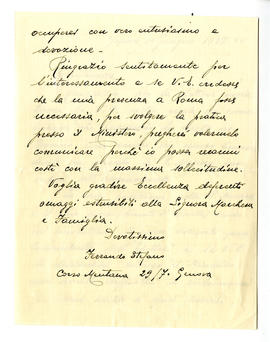 occuperei con vero entusiasmo e
devozione -
Ringrazio sentitamente per
l'interessamento e se V. E. credesse
che la mia presenza a Roma fosse
necessaria, per svolgere la pratica
presso il Ministro, pregherei volermelo
comunicare perché io possa recarmi
costì con la massima sollecitudine.
Voglia gradire Eccellenza deferenti
omaggi estensibili alla Signora Marchesa
e Famiglia.
Devotissimo
Ferrando Stefano
Corso Mentana 29/7. Genova